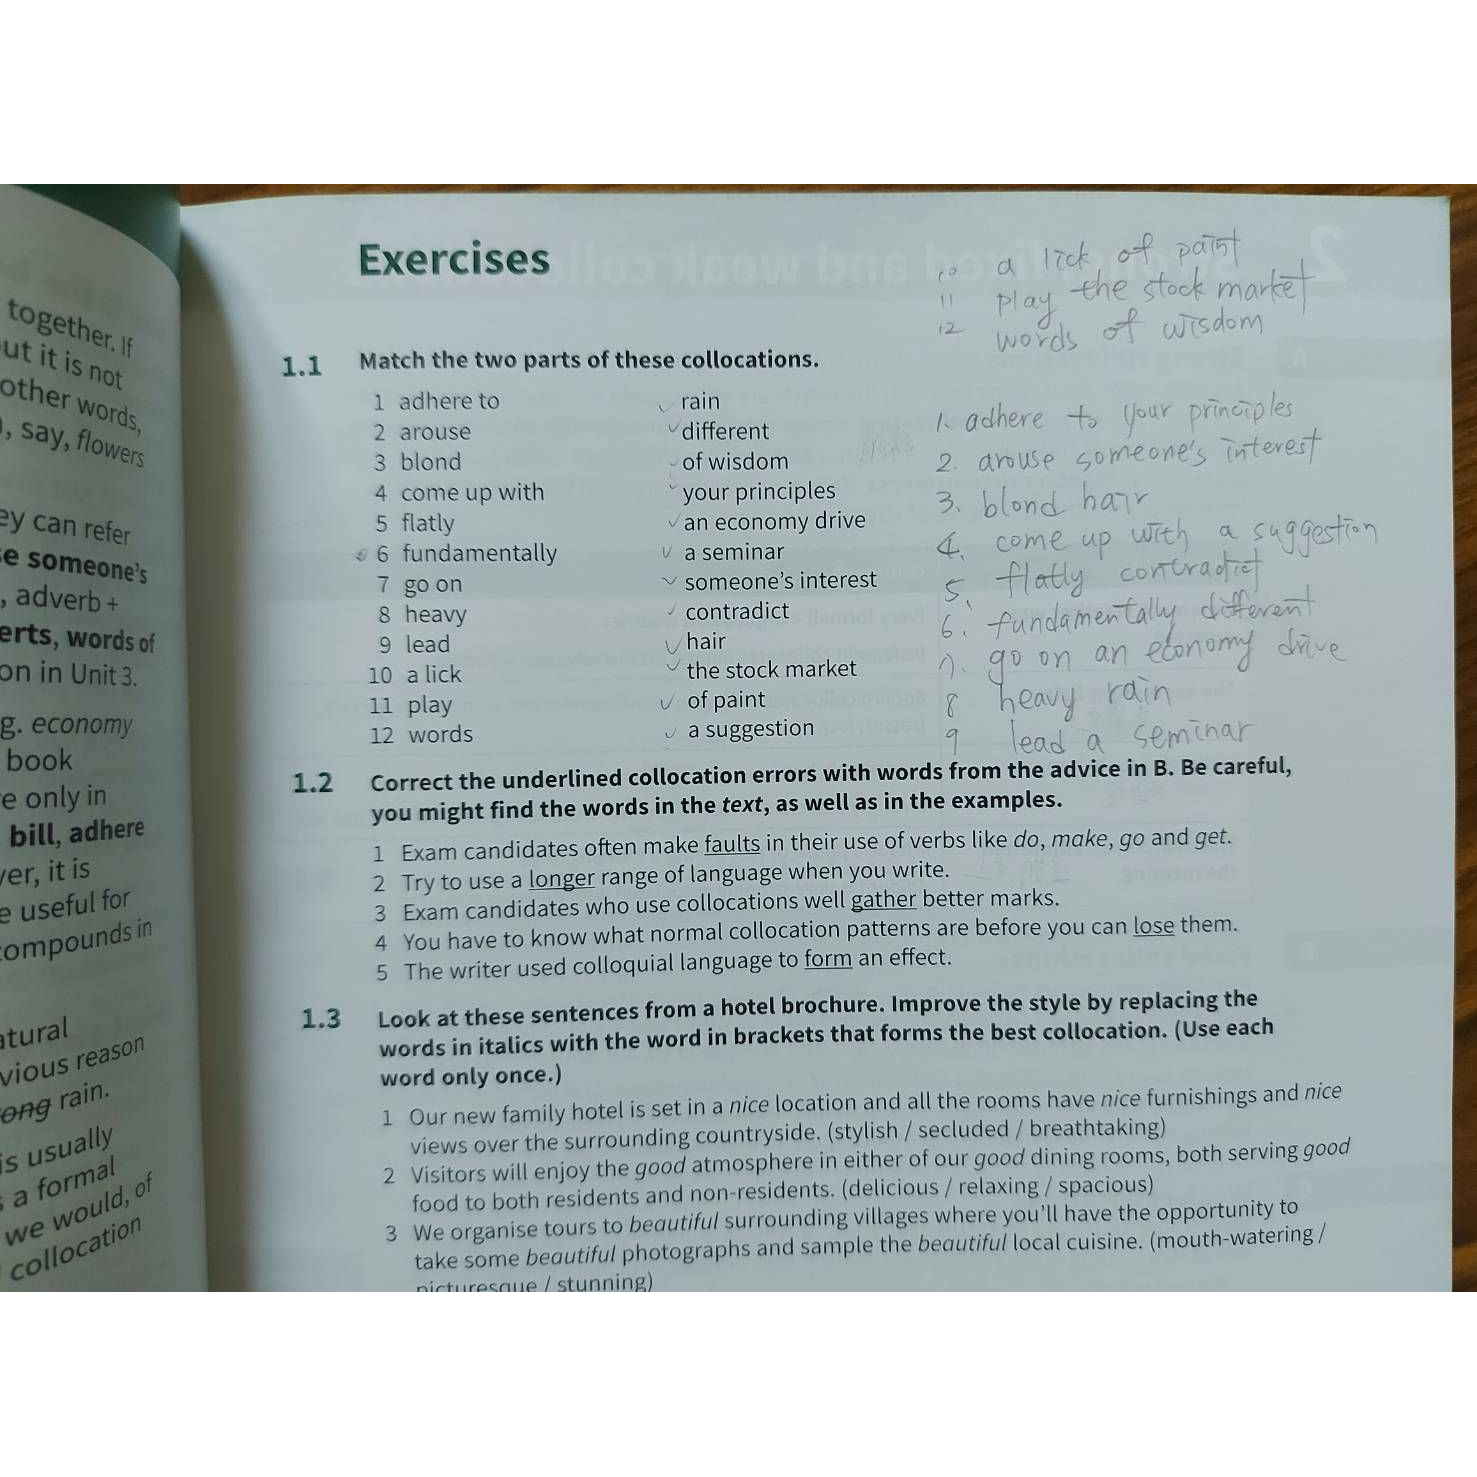 together. If
ut it is not
other words,
, say, flowers
ey can refer
e someone's
, adverb +
erts, words of
on in Unit 3.
g. economy
book
e only in
bill, adhere
ver, it is
e useful for
compounds in
atural
vious reason
ong rain.
is usually
s a formal
we would, of
collocation
Exercises
10 a lick of paint
11 play the stock market
12 words of wisdom
1.1 Match the two parts of these collocations.
1 adhere to rain
2 arouse different
3 blond of wisdom
4 come up with your principles
5 flatly an economy drive
6 fundamentally a seminar
7 go on someone's interest
8 heavy contradict
9 lead hair
10 a lick the stock market
11 play of paint
12 words a suggestion
1. adhere to your principles
2. arouse someone's interest
3. blond hair
4. come up with a suggestion
5. flatly contradict
6. fundamentally different
7. go on an economy drive
8 heavy rain
9 lead a seminar
1.2 Correct the underlined collocation errors with words from the advice in B. Be careful,
you might find the words in the text, as well as in the examples.
1 Exam candidates often make faults in their use of verbs like do, make, go and get.
2 Try to use a longer range of language when you write.
3 Exam candidates who use collocations well gather better marks.
4 You have to know what normal collocation patterns are before you can lose them.
5 The writer used colloquial language to form an effect.
1.3 Look at these sentences from a hotel brochure. Improve the style by replacing the
words in italics with the word in brackets that forms the best collocation. (Use each
word only once.)
1 Our new family hotel is set in a nice location and all the rooms have nice furnishings and nice
views over the surrounding countryside. (stylish / secluded / breathtaking)
2 Visitors will enjoy the good atmosphere in either of our good dining rooms, both serving good
food to both residents and non-residents. (delicious / relaxing / spacious)
3 We organise tours to beautiful surrounding villages where you'll have the opportunity to
take some beautiful photographs and sample the beautiful local cuisine. (mouth-watering /
picturesque / stunning)